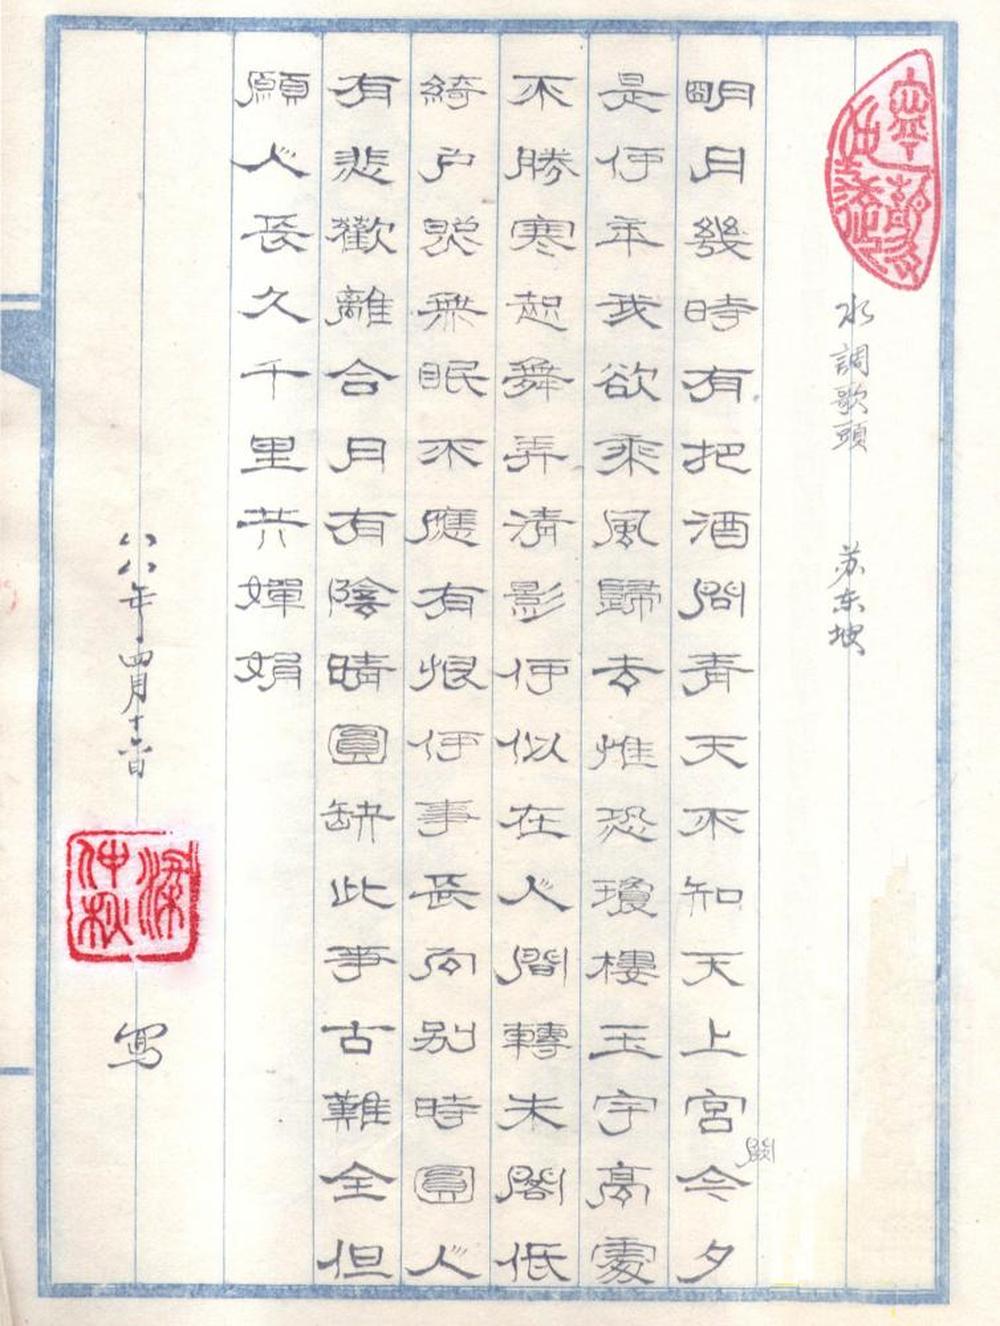 水調歌頭 苏东坡
明月幾時有把酒問青天不知天上宮闕今夕
是何年我欲乘風歸去惟恐瓊樓玉宇高處
不勝寒起舞弄清影何似在人間轉朱閣低
綺戶照無眠不應有恨何事長向別時圓人
有悲歡離合月有陰晴圓缺此事古難全但
願人長久千里共嬋娟
八八年四月十六日
梁仲秋
寫